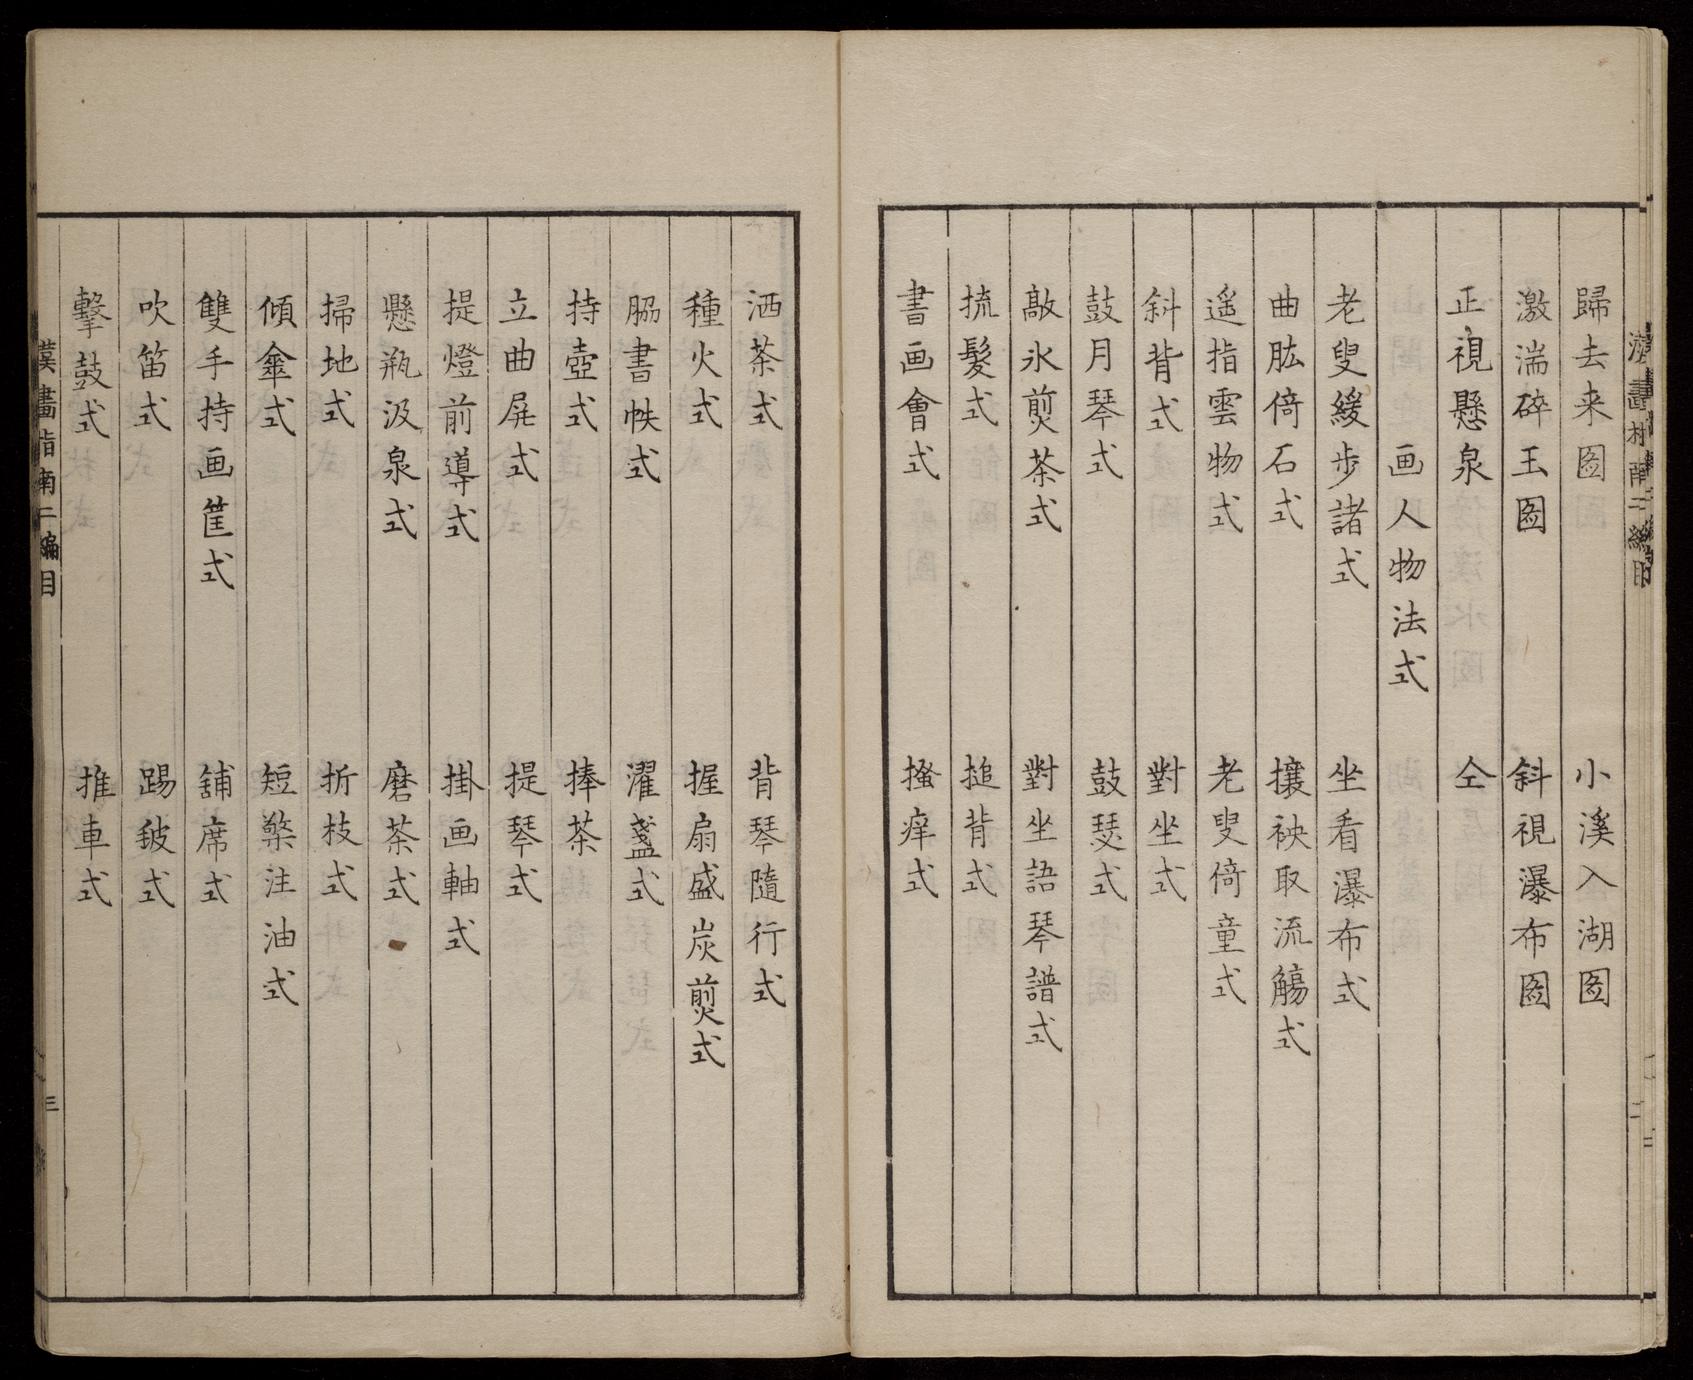 歸去来圖　小溪入湖圖
激湍碎玉圖　斜視瀑布圖
正視懸泉　仝
画人物法式
老叟緩歩諸式　坐看瀑布式
曲肱倚石式　攘袂取流觴式
遥指雲物式　老叟倚童式
斜背式　對坐式
鼓月琴式　鼓瑟式
敲氷煎茶式　對坐語琴譜式
梳髮式　搥背式
書画會式　搔痒式
洒茶式　背琴隨行式
種火式　握扇盛炭煎式
脇書帙式　濯盞式
持壺式　捧茶
立曲屛式　提琴式
提燈前導式　掛画軸式
懸瓶汲泉式　磨茶式
掃地式　折枝式
傾傘式　短檠注油式
雙手持画筐式　舖席式
吹笛式　踢毬式
擊鼓式　推車式
漢畫指南二編目　三